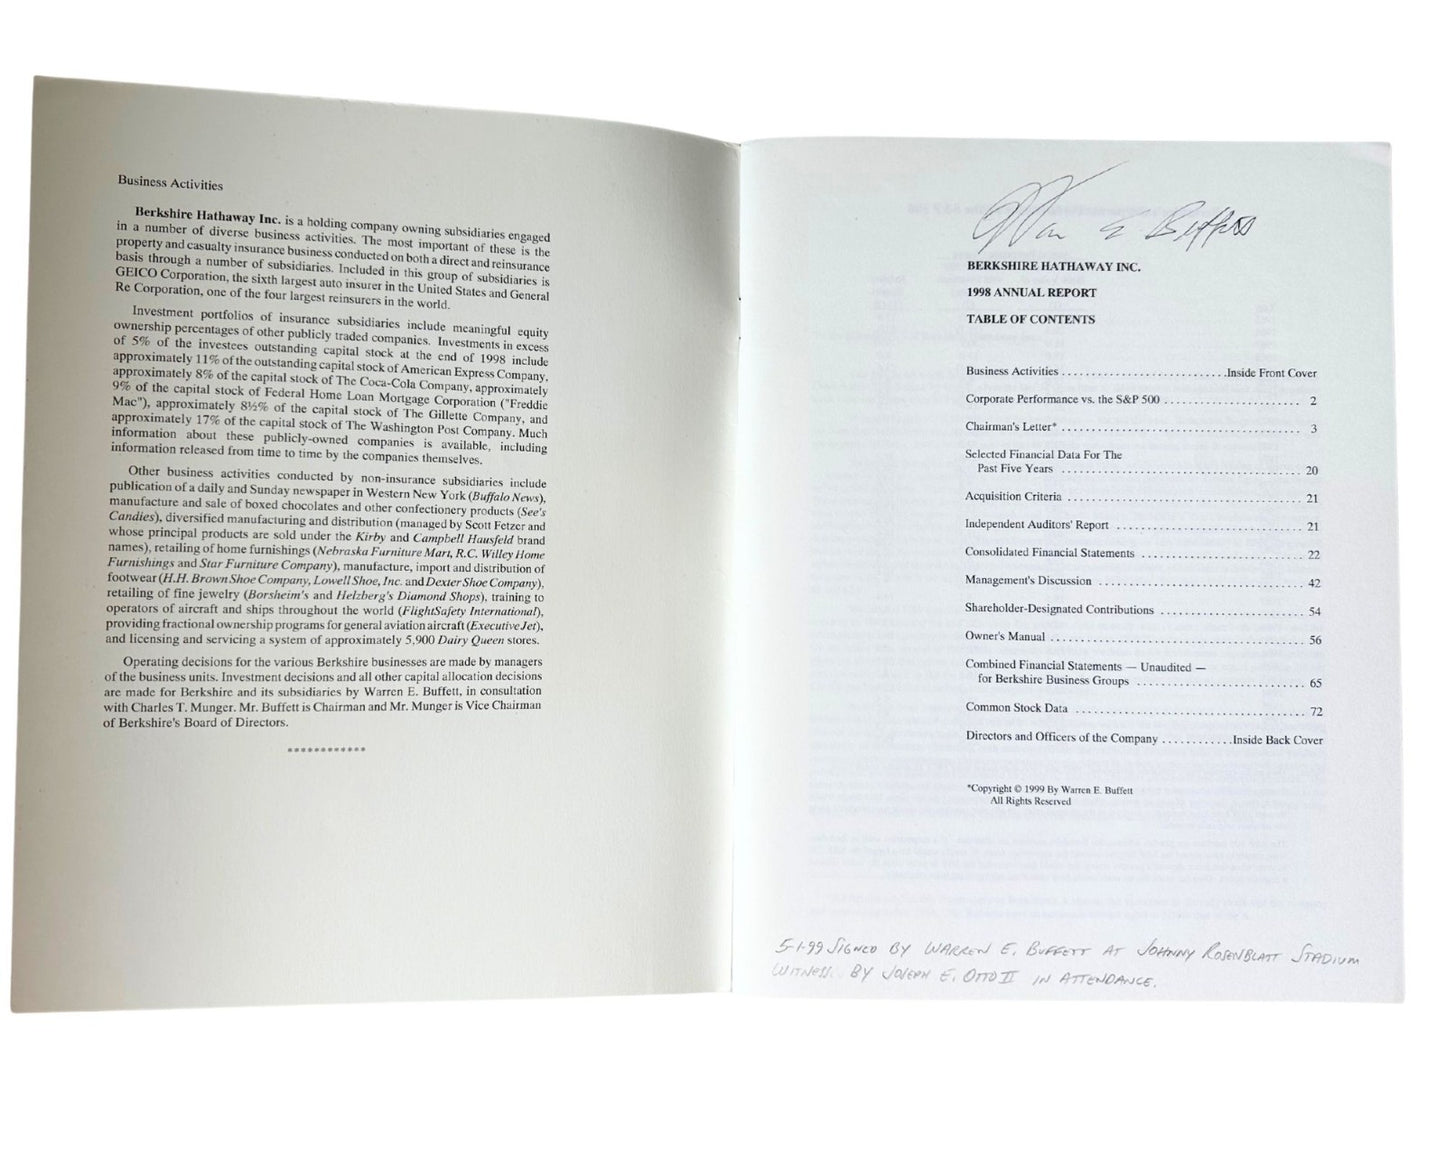 Business Activities
Berkshire Hathaway Inc. is a holding company owning subsidiaries engaged
in a number of diverse business activities. The most important of these is the
property and casualty insurance business conducted on both a direct and reinsurance
basis through a number of subsidiaries. Included in this group of subsidiaries is
GEICO Corporation, the sixth largest auto insurer in the United States and General
Re Corporation, one of the four largest reinsurers in the world.
Investment portfolios of insurance subsidiaries include meaningful equity
ownership percentages of other publicly traded companies. Investments in excess
of 5% of the investees outstanding capital stock at the end of 1998 include
approximately 11% of the outstanding capital stock of American Express Company,
approximately 8% of the capital stock of The Coca-Cola Company, approximately
9% of the capital stock of Federal Home Loan Mortgage Corporation ("Freddie
Mac"), approximately 8½% of the capital stock of The Gillette Company, and
approximately 17% of the capital stock of The Washington Post Company. Much
information about these publicly-owned companies is available, including
information released from time to time by the companies themselves.
Other business activities conducted by non-insurance subsidiaries include
publication of a daily and Sunday newspaper in Western New York (Buffalo News),
manufacture and sale of boxed chocolates and other confectionery products (See's
Candies), diversified manufacturing and distribution (managed by Scott Fetzer and
whose principal products are sold under the Kirby and Campbell Hausfeld brand
names), retailing of home furnishings (Nebraska Furniture Mart, R.C. Willey Home
Furnishings and Star Furniture Company), manufacture, import and distribution of
footwear (H.H. Brown Shoe Company, Lowell Shoe, Inc. and Dexter Shoe Company),
retailing of fine jewelry (Borsheim's and Helzberg's Diamond Shops), training to
operators of aircraft and ships throughout the world (FlightSafety International),
providing fractional ownership programs for general aviation aircraft (Executive Jet),
and licensing and servicing a system of approximately 5,900 Dairy Queen stores.
Operating decisions for the various Berkshire businesses are made by managers
of the business units. Investment decisions and all other capital allocation decisions
are made for Berkshire and its subsidiaries by Warren E. Buffett, in consultation
with Charles T. Munger. Mr. Buffett is Chairman and Mr. Munger is Vice Chairman
of Berkshire's Board of Directors.
************
BERKSHIRE HATHAWAY INC.
1998 ANNUAL REPORT
TABLE OF CONTENTS
Business Activities ............................ Inside Front Cover
Corporate Performance vs. the S&P 500 ........................ 2
Chairman's Letter* .......................................... 3
Selected Financial Data For The
Past Five Years .......................................... 20
Acquisition Criteria .......................................... 21
Independent Auditors' Report ................................ 21
Consolidated Financial Statements ............................ 22
Management's Discussion .................................... 42
Shareholder-Designated Contributions ........................ 54
Owner's Manual ............................................ 56
Combined Financial Statements — Unaudited —
for Berkshire Business Groups ............................ 65
Common Stock Data ........................................ 72
Directors and Officers of the Company ............ Inside Back Cover
*Copyright © 1999 By Warren E. Buffett
All Rights Reserved
5-1-99 SIGNED BY WARREN E. BUFFETT AT JOHNNY ROSENBLATT STADIUM
WITNESS BY JOSEPH E. OTTO II IN ATTENDANCE.